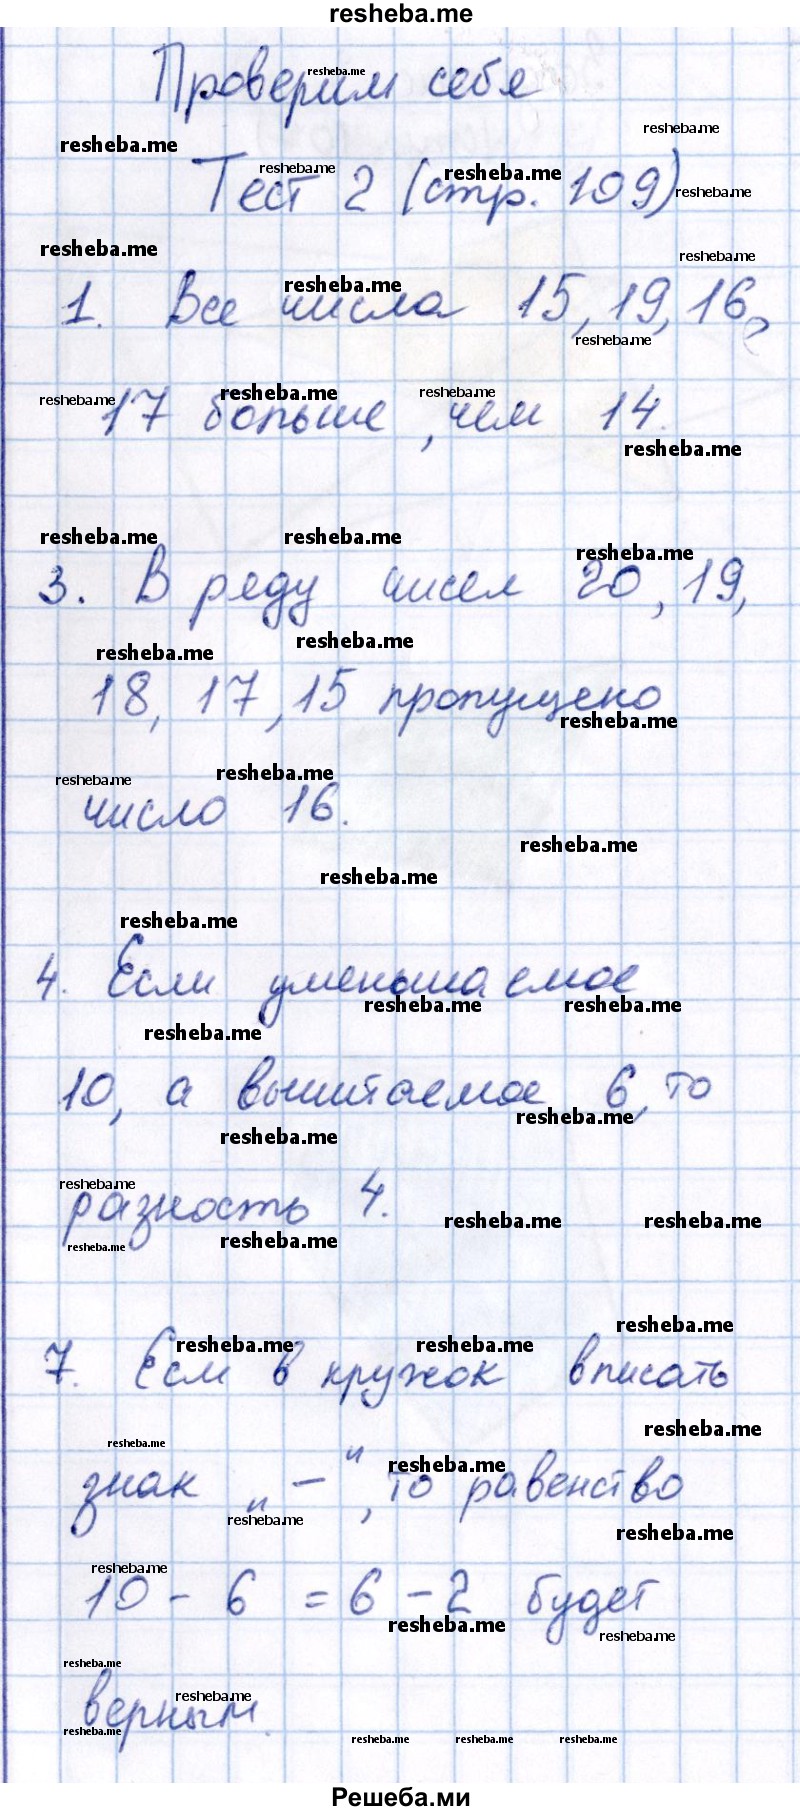 resheba.me
Проверим себя
Тест 2 (стр. 109)
1. Все числа 15, 19, 16,
17 больше, чем 14.
3. В ряду чисел 20, 19,
18, 17, 15 пропущено
число 16.
4. Если уменьшаемое
10, а вычитаемое 6, то
разность 4.
7. Если в кружок вписать
знак „ − ", то равенство
10 - 6 = 6 - 2 будет
верным.
Решеба.ми